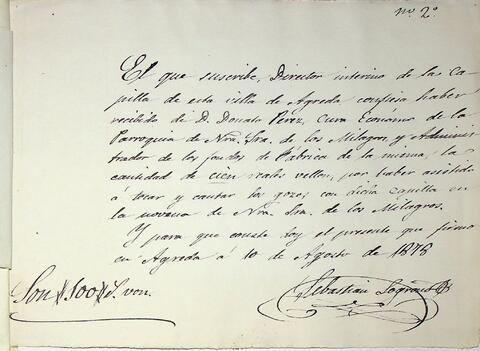 nº 2º
El que suscribe, Director interino de la Ca-
pilla de esta villa de Agreda confiesa haber
recibido de D. Donato Pérez, cura Economo de la
Parroquia de Nra. Sra. de los Milagros, y Adminis-
trador de los fondos de Fábrica de la misma, la
cantidad de cien reales vellon, por haber asistido
á tocar y cantar los gozos, con dicha capilla en
la novena de Nra. Sra. de los Milagros.
Y para que conste doy el presente que firmo
en Agreda á 10 de Agosto de 1878
Son 100 r. von.
Sebastian